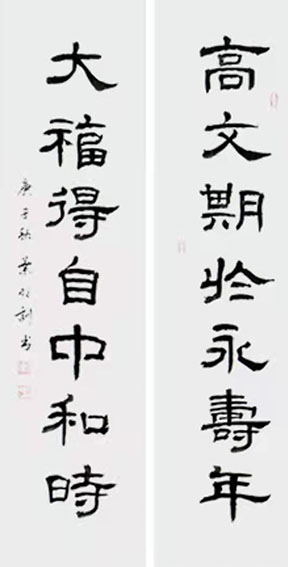 高文期於永壽年
大福得自中和時
庚子秋
書